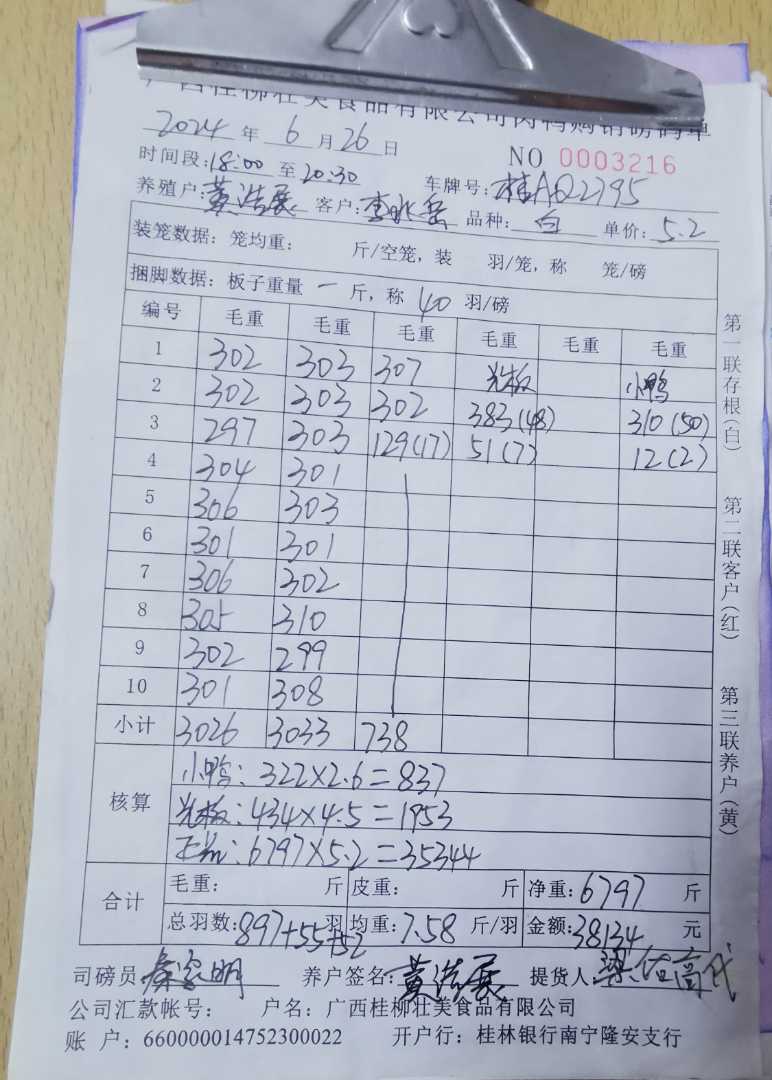 广西桂柳壮美食品有限公司肉鸭购销磅码单
2024 年 6 月 26 日
NO 0003216
时间段:18:00 至 20:30
养殖户:黄浩展 客户: 品种:白 单价:5.2
车牌号:桂AQ2795
装笼数据:笼均重: 斤/空笼,装 羽/笼,称 笼/磅
捆脚数据:板子重量 一 斤,称 40 羽/磅
编号 毛重 毛重 毛重 毛重 毛重 毛重
1 302 303 307 光板 小鸭
2 302 303 302 383(48) 310(50)
3 297 303 129(17) 51(7) 12(2)
4 304 301
5 306 303
6 301 301
7 306 302
8 305 310
9 302 299
10 301 308
小计 3026 3033 738
核算 小鸭:322×2.6=837
光板:434×4.5=1953
正品:6797×5.2=35344
合计 毛重: 斤 皮重: 斤 净重:6797 斤
总羽数:897+55+52 羽 均重:7.58 斤/羽 金额:38134 元
司磅员:秦家明 养户签名:黄浩展 提货人:
公司汇款帐号: 户名:广西桂柳壮美食品有限公司
账 户:660000014752300022 开户行:桂林银行南宁隆安支行
第一联存根(白)
第二联客户(红)
第三联养户(黄)